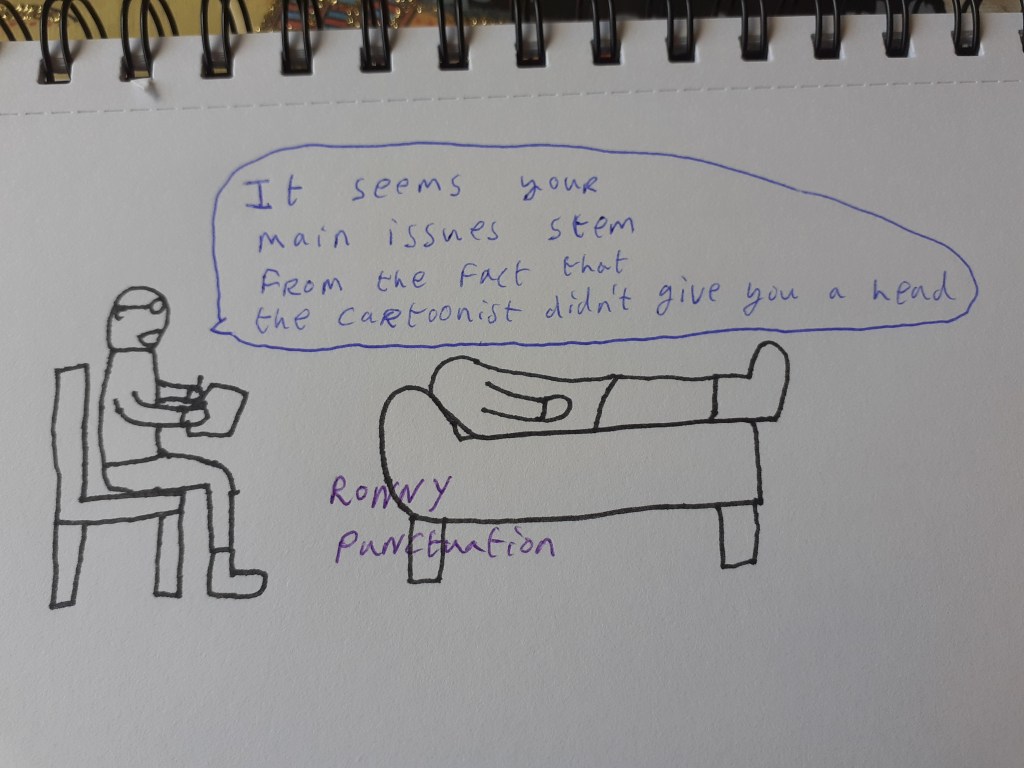 It seems your
main issues stem
From the fact that
the cartoonist didn't give you a head
Ronny
Punctuation